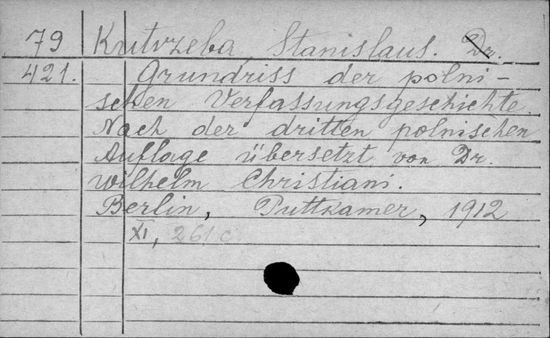 79 Kutrzeba Stanislaus. Dr.
421. Grundriss der polni-
schen Verfassungsgeschichte
Nach der dritten polnischen
Auflage übersetzt von Dr.
Wilhelm Christiani.
Berlin, Puttkamer, 1912
XI, 261 c